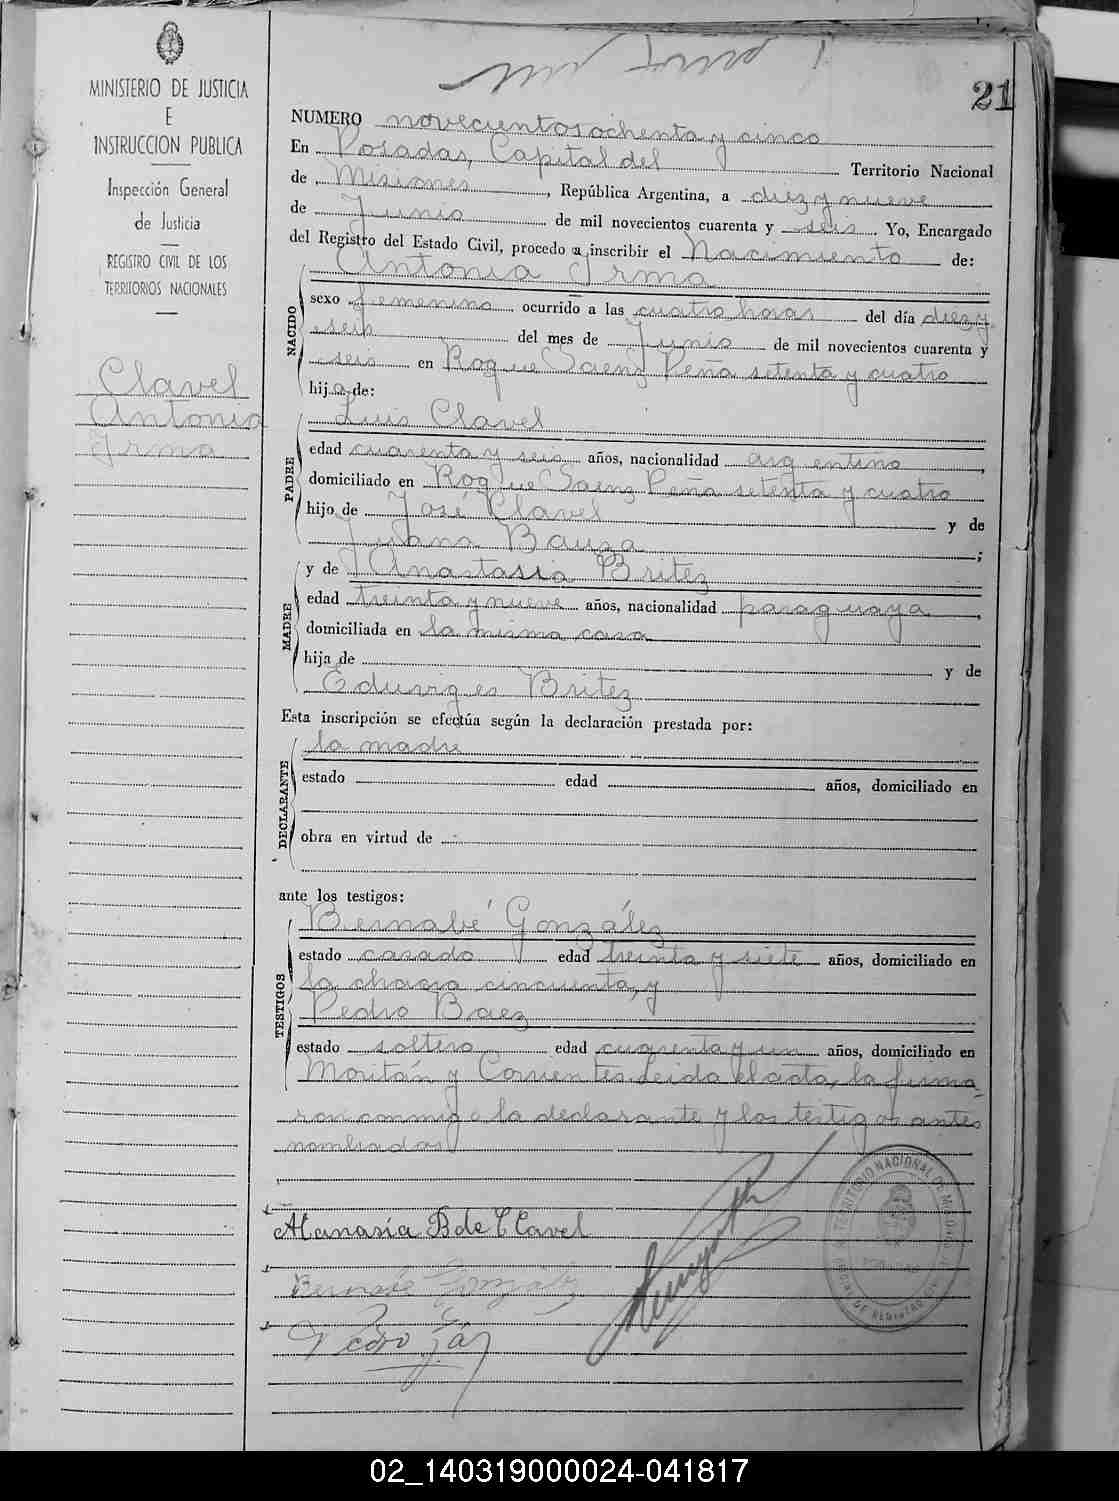 MINISTERIO DE JUSTICIA
E
INSTRUCCION PUBLICA
Inspección General
de Justicia
REGISTRO CIVIL DE LOS
TERRITORIOS NACIONALES
Clavel
Antonia
Irma
21
NUMERO novecientos ochenta y cinco
En Posadas, Capital del Territorio Nacional
de Misiones, República Argentina, a diez y nueve
de Junio de mil novecientos cuarenta y seis. Yo, Encargado
del Registro del Estado Civil, procedo a inscribir el Nacimiento de:
Antonia Irma
NACIDO
sexo femenino ocurrido a las cuatro horas del día diez y
seis del mes de Junio de mil novecientos cuarenta y
seis en Roque Saenz Peña setenta y cuatro
hija de:
Luis Clavel
PADRE
edad cuarenta y seis años, nacionalidad argentino,
domiciliado en Roque Saenz Peña setenta y cuatro
hijo de José Clavel y de
Juana Bauza;
y de Anastasia Britez
MADRE
edad treinta y nueve años, nacionalidad paraguaya,
domiciliada en la misma casa
hija de y de
Eduviges Britez
Esta inscripción se efectúa según la declaración prestada por:
la madre
DECLARANTE
estado edad años, domiciliado en
obra en virtud de
ante los testigos:
Bernabé González
TESTIGOS
estado casado edad treinta y siete años, domiciliado en
la chacra cincuenta, y
Pedro Baez
estado soltero edad cuarenta y un años, domiciliado en
y Corrientes. Leida el acta, la firma
ron conmigo la declarante y los testigos antes
nombrados
Atanasia B de Clavel
Bernabe Gonzalez
Pedro
TERRITORIO NACIONAL DE MISIONES
POSADAS
02_140319000024-041817